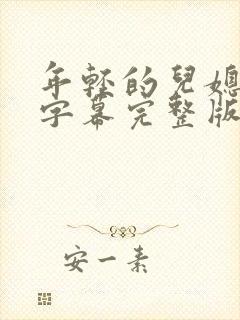 年輕的兒媳
字幕完整版
安一素